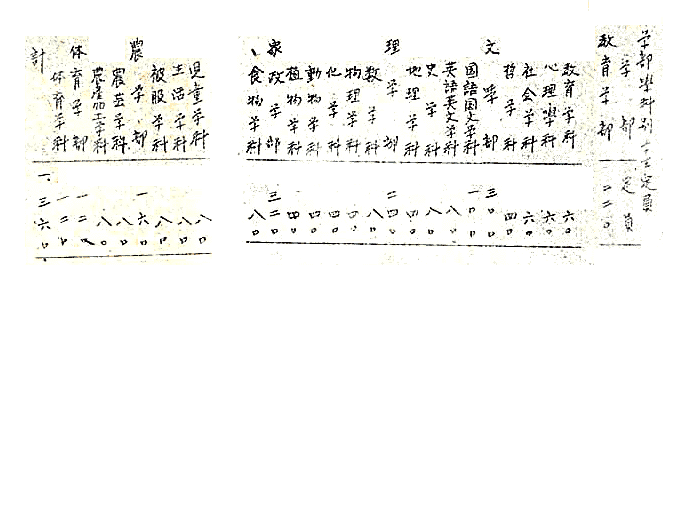 学部學科別学生定員
学部 定員
教育学部 二二〇
教育学科 六〇
心理學科 六〇
社会学科 六〇
哲学科 四〇
文学部 三〇〇
国語国文学科 一〇〇
英語英文学科 八〇
史学科 八〇
地理学科 四〇
理学部 二四〇
数学科 八〇
物理学科 四〇
化学科 四〇
動物学科 四〇
植物学科 四〇
家政学部 三二〇
食物学科 八〇
児童学科 八〇
生活学科 八〇
被服学科 八〇
農学部 一六〇
農芸学科 八〇
農産加工学科 八〇
体育学部 一二〇
体育学科 一二〇
計 一、三六〇